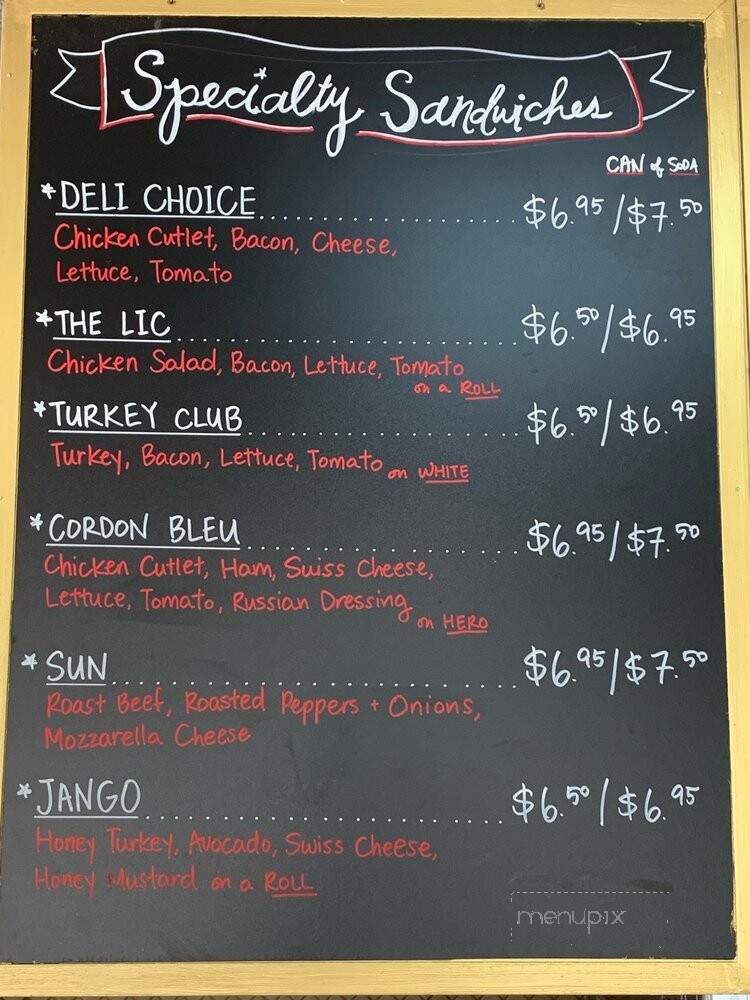 Specialty Sandwiches
CAN of SODA
*DELI CHOICE.................... $6.95/$7.50
Chicken Cutlet, Bacon, Cheese,
Lettuce, Tomato
*THE LIC.................... $6.50/$6.95
Chicken Salad, Bacon, Lettuce, Tomato
on a ROLL
*TURKEY CLUB.................... $6.50/$6.95
Turkey, Bacon, Lettuce, Tomato on WHITE
*CORDON BLEU.................... $6.95/$7.50
Chicken Cutlet, Ham, Swiss Cheese,
Lettuce, Tomato, Russian Dressing
on HERO
*SUN.................... $6.95/$7.50
Roast Beef, Roasted Peppers + Onions,
Mozzarella Cheese
*JANGO.................... $6.50/$6.95
Honey Turkey, Avocado, Swiss Cheese,
Honey Mustard on a ROLL
menupix